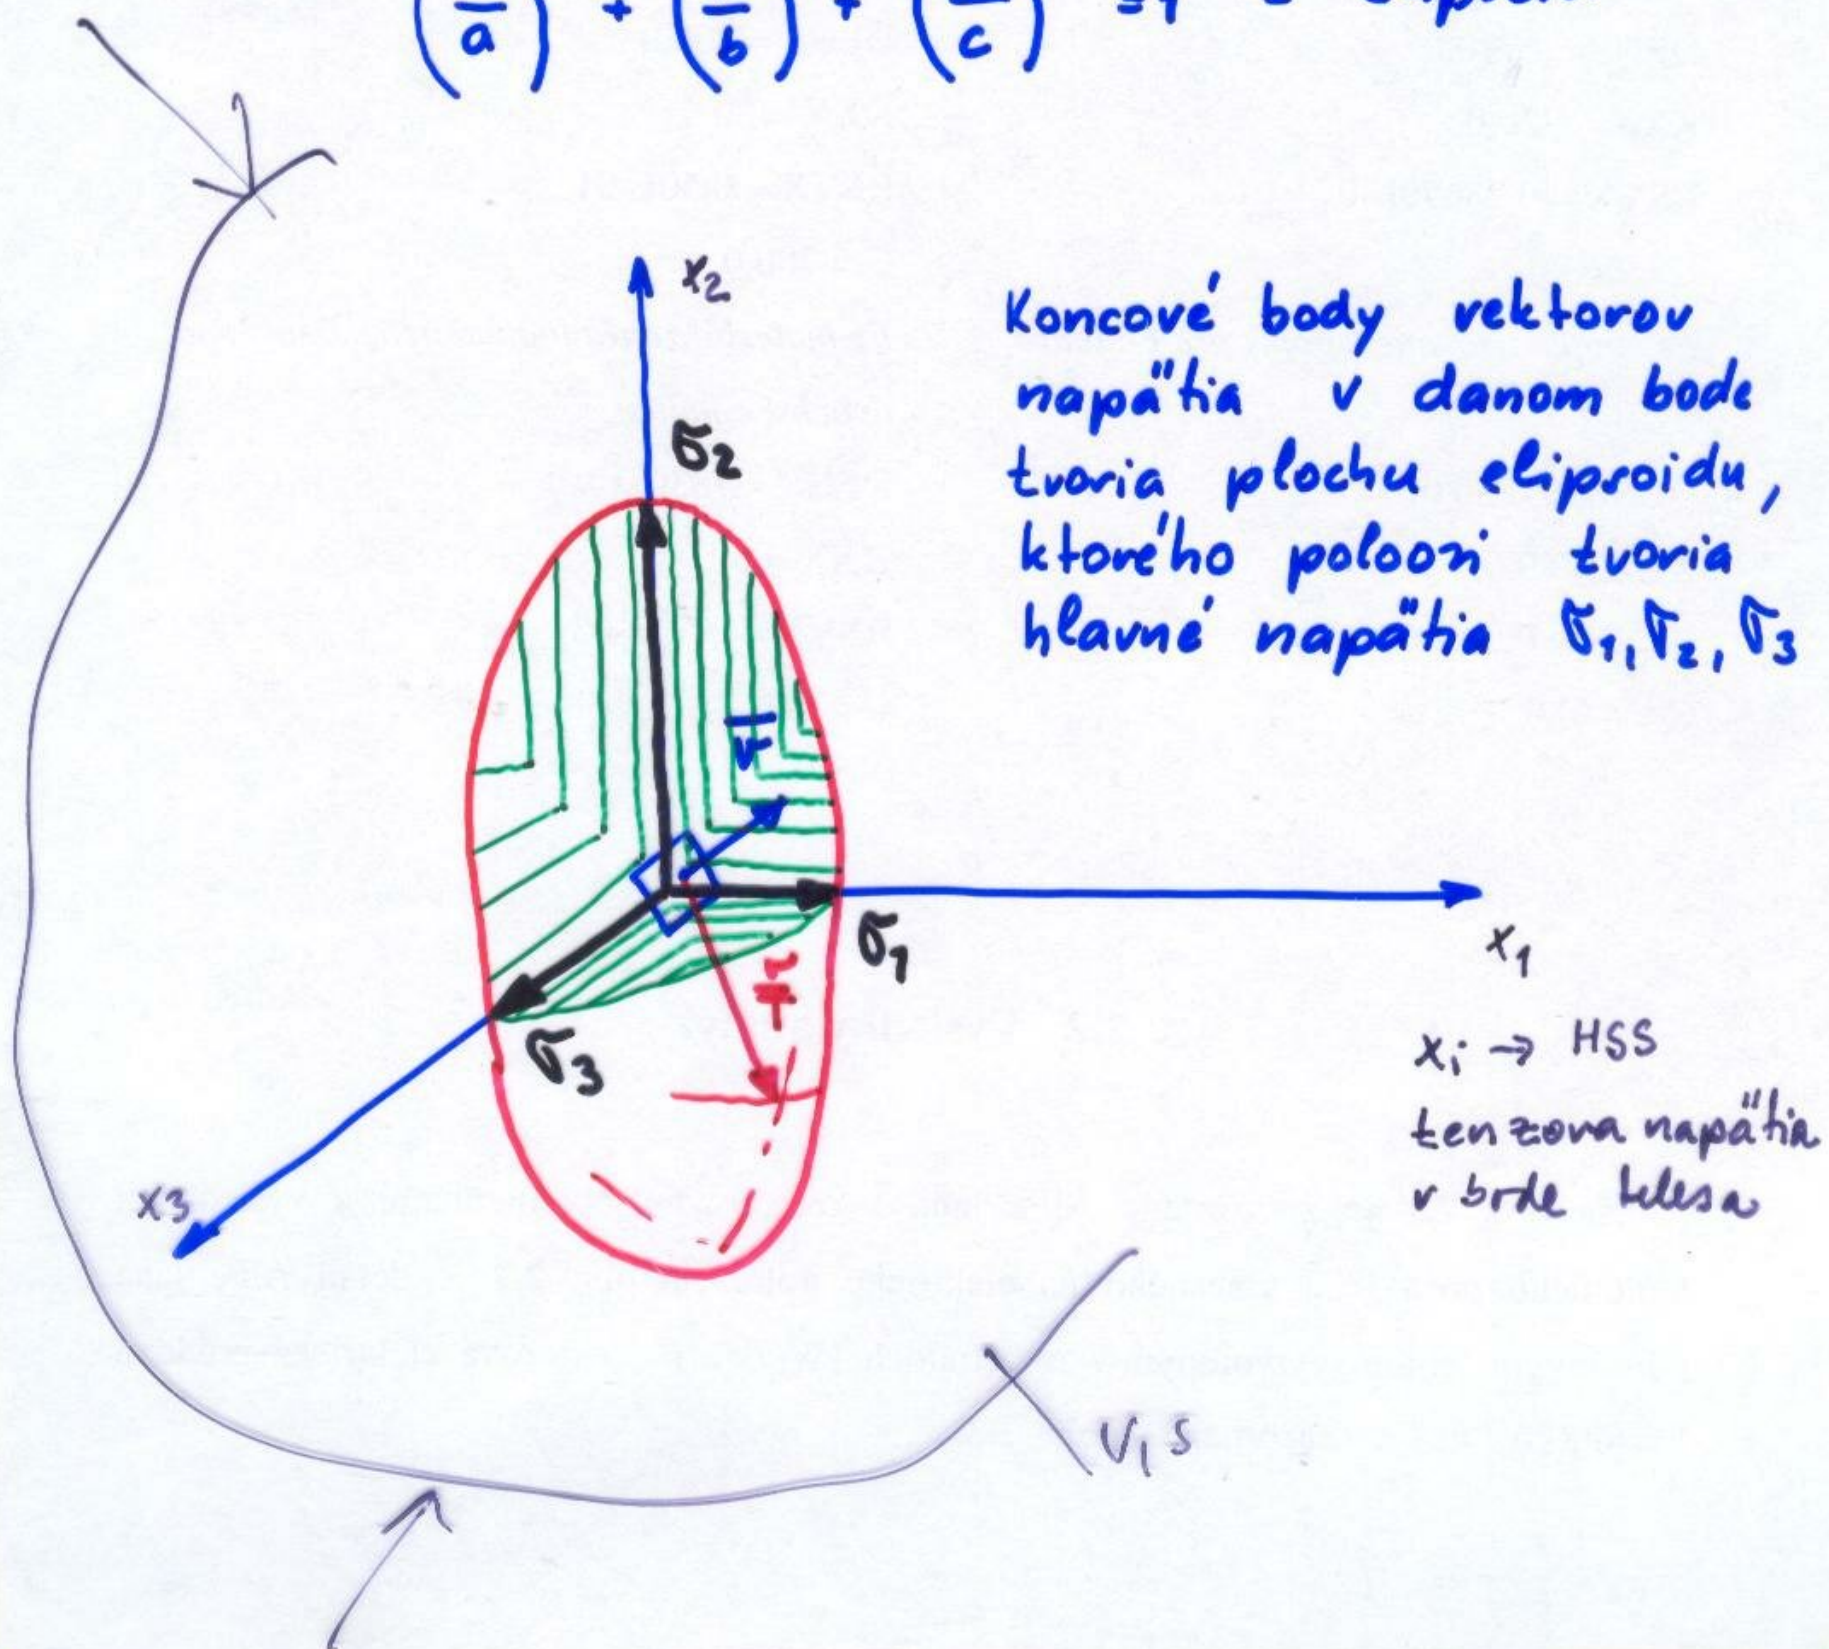 (— a) + (— b) + (— c) = 1
x₂
Koncové body vektorov
napätia v danom bode
tvoria plochu elipsoidu,
ktorého poloosi tvoria
hlavné napätia σ₁, σ₂, σ₃
σ₂
v̄
σ₁
x₁
σ₃
xᵢ → HSS
tenzora napätia
v bode telesa
x₃
V, S